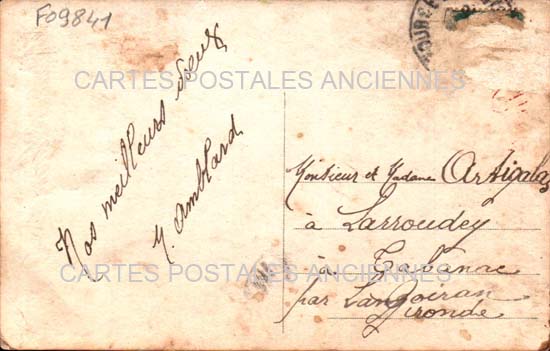 F09841
CARTES POSTALES ANCIENNES
Nos meilleurs voeux
Y. Amblard
Monsieur et Madame Artigalas
à Larroudey
à Tabanac
par Langoiran
Gironde
CARTES POSTALES ANCIENNES